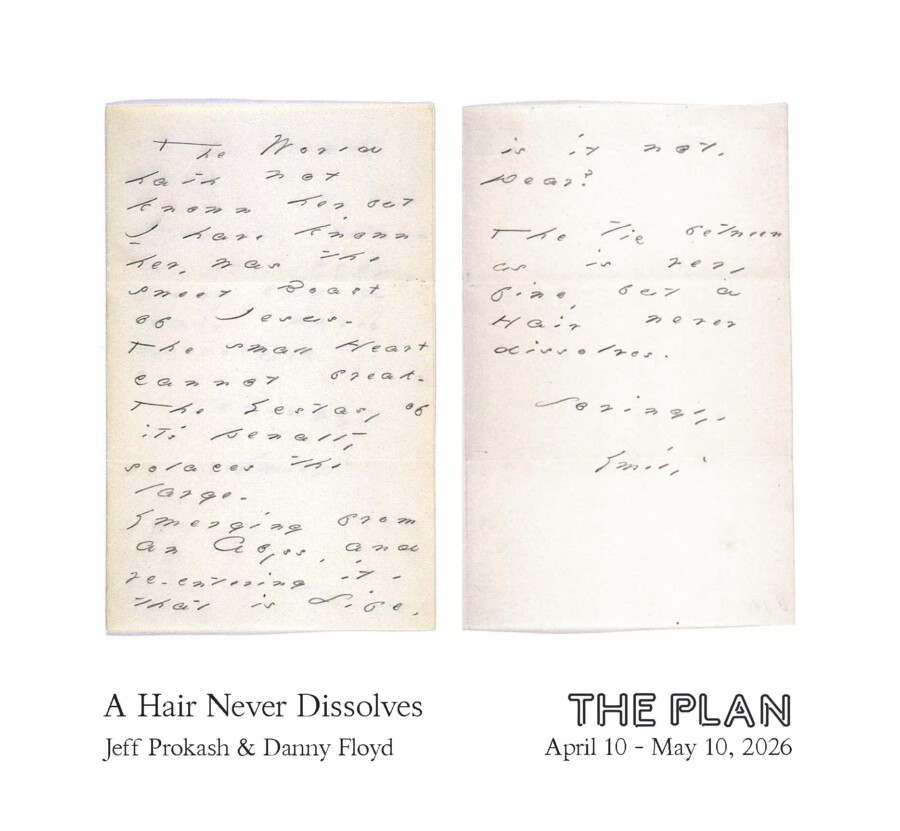 The World
hath not
known her, but
I have known
her, was the
sweet Boast
of Jesus -
The small Heart
cannot break -
The Ecstasy of
it's penalty
solaces the
large -
Emerging from
an Abyss, and
re-entering it -
that is Life,
is it not,
Dear?
The Tie between
us is very
fine, but a
Hair never
dissolves.
Lovingly,
Emily -
A Hair Never Dissolves
Jeff Prokash & Danny Floyd
THE PLAN
April 10 - May 10, 2026